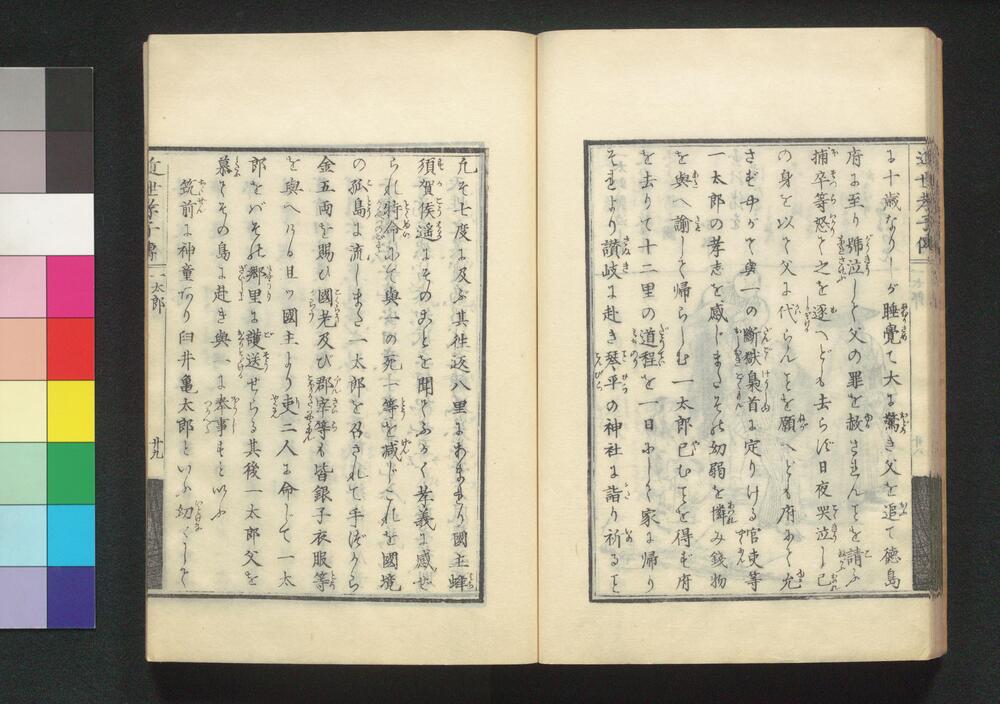 近世孝子傳
に十歳なりしが睡覚て大に驚き父を追て徳島
府に至り號泣して父の罪を赦されんことを請ふ
捕卒等怒て之を逐へども去らず日夜哭泣し己
の身を以て父に代らんことを願へども府にて允
さず中がて與一の斷獄梟首に定りける官吏等
一太郎の孝志を感じまたその幼弱を憐み錢物
を與へ諭して帰らしむ一太郎已むことを得ず府
を去りて十二里の道程を一日にして家に帰り
それより讃岐に赴き琴平の神社に詣り祈ること
凡そ七度に及ぶ其往返八里にあまれり國主蜂
須賀侯遥にそのことを聞てふかく孝義に感ぜ
られ特命にて與一の死一等を減じこれを國境
の孤島に流しまた一太郎を召されて手づから
金五両を賜ひ國老及び郡宰等も皆銀子衣服等
を與へける且つ國主より吏二人に命して一太
郎をばその郷里に護送せらる其後一太郎父を
慕てその島に赴き與一に奉事すと以ふ
筑前に神童あり臼井亀太郎といふ幼くして
近世孝子傳 一太郎 廿九